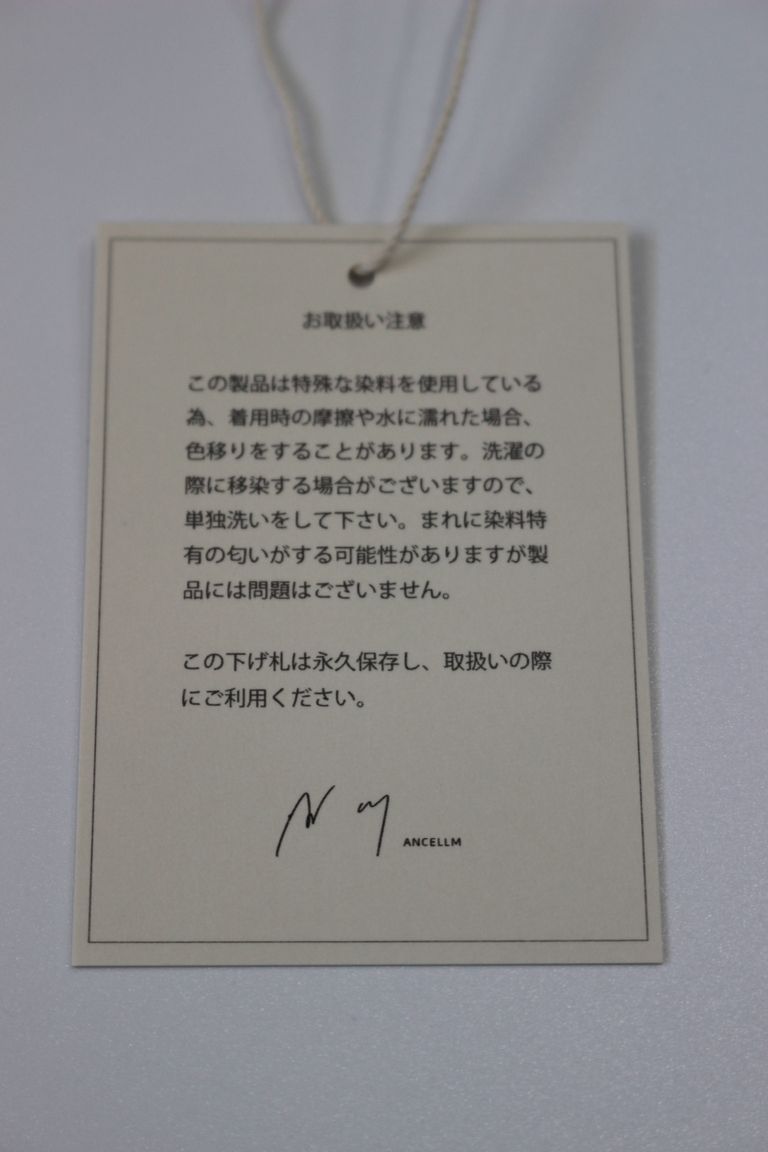 お取扱い注意
この製品は特殊な染料を使用している
為、着用時の摩擦や水に濡れた場合、
色移りをすることがあります。洗濯の
際に移染する場合がございますので、
単独洗いをして下さい。まれに染料特
有の匂いがする可能性がありますが製
品には問題はございません。
この下げ札は永久保存し、取扱いの際
にご利用ください。
ANCELLM